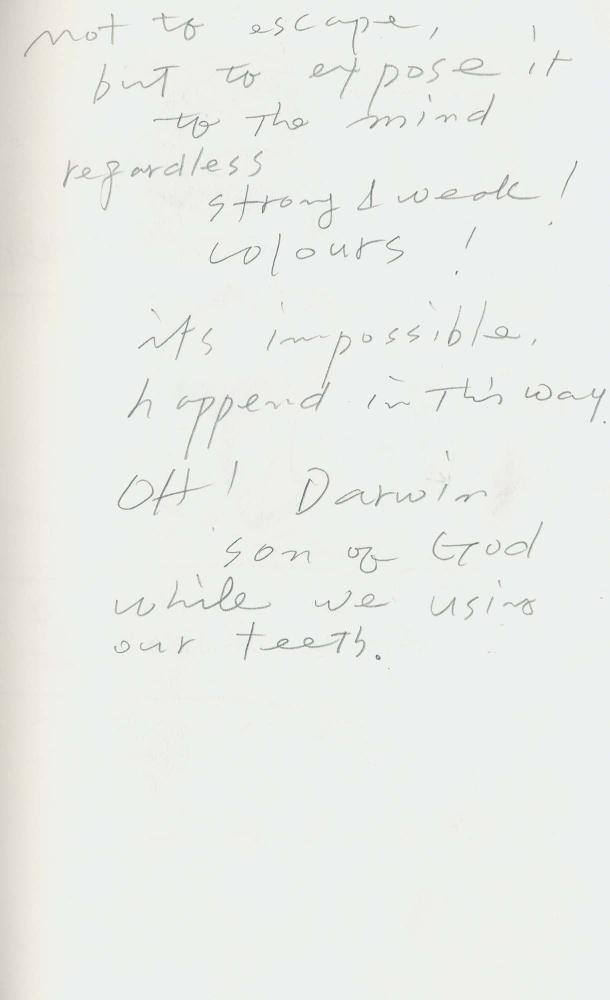 not to escape,
but to expose it
to the mind
regardless
strong & weak!
colours !
its impossible.
happend in this way.
OH! Darwin
son of God
while we using
our teeth.